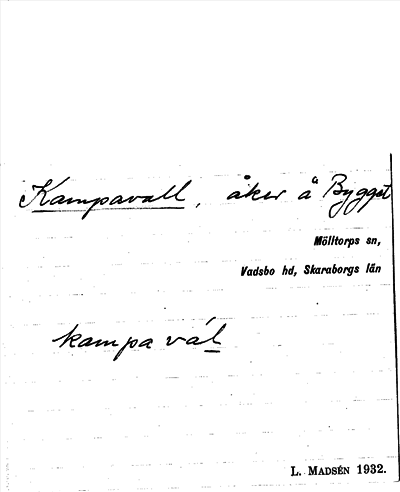 Kampavall, åker å Bygget
Mölltorps sn,
Vadsbo hd, Skaraborgs län
kampa vál
L. MADSÉN 1932.